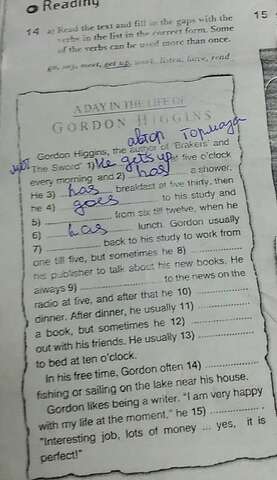 Reading
15
14 a) Read the text and fill in the gaps with the
verbs in the list in the correct form. Some
of the verbs can be used more than once.
go, say, meet, get up, work, listen, have, read
A DAY IN THE LIFE OF
GORDON HIGGINS
автор Тормоза
Gordon Higgins, the author of 'Brakers' and
The Sword' 1) He gets up at five o'clock
every morning and 2) has a shower.
He 3) has breakfast at five thirty, then
he 4) goes to his study and
5) ............ from six till twelve, when he
6) has lunch. Gordon usually
7) ............ back to his study to work from
one till five, but sometimes he 8) ............
his publisher to talk about his new books. He
always 9) ............ to the news on the
radio at five, and after that he 10) ............
dinner. After dinner, he usually 11) ............
a book, but sometimes he 12) ............
out with his friends. He usually 13) ............
to bed at ten o'clock.
In his free time, Gordon often 14) ............
fishing or sailing on the lake near his house.
Gordon likes being a writer. "I am very happy
with my life at the moment," he 15) ............
"Interesting job, lots of money ... yes, it is
perfect!"